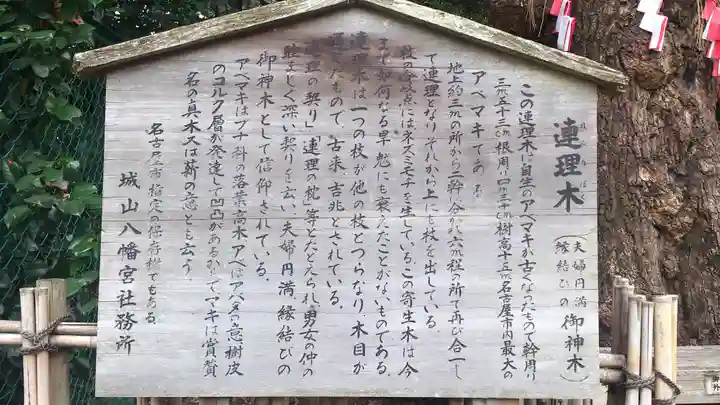 連理木
れんりぼく
（夫婦円満
縁結びの御神木）
この連理木は自生のアベマキが古くなったもので幹周り
三米五十三糎根周り四米三十糎樹高十五米名古屋市内最大の
アベマキである。
地上約三米の所から二幹に分れ六米程の所で再び合一し
て連理となりそれから上にも枝を出している。
枝の分岐点にはネズミモチを生している。この寄生木は今
まで如何なる旱魃にも衰えたことがないものである。
連理木は一つの枝が他の枝とつらなり、木目が
通ったもので、古来、吉兆とされている。
「連理の契り」「連理の枕」等とたとえられ、男女の仲の
睦ましく深い契りを云い夫婦円満縁結びの
御神木として信仰されている。
アベマキはブナ科の落葉高木アベはアバタの意樹皮
のコルク層が発達して凹凸があるからで、マキは賞賛
名の真木又は薪の意とも云う。
名古屋市指定の保存樹でもある。
城山八幡宮社務所